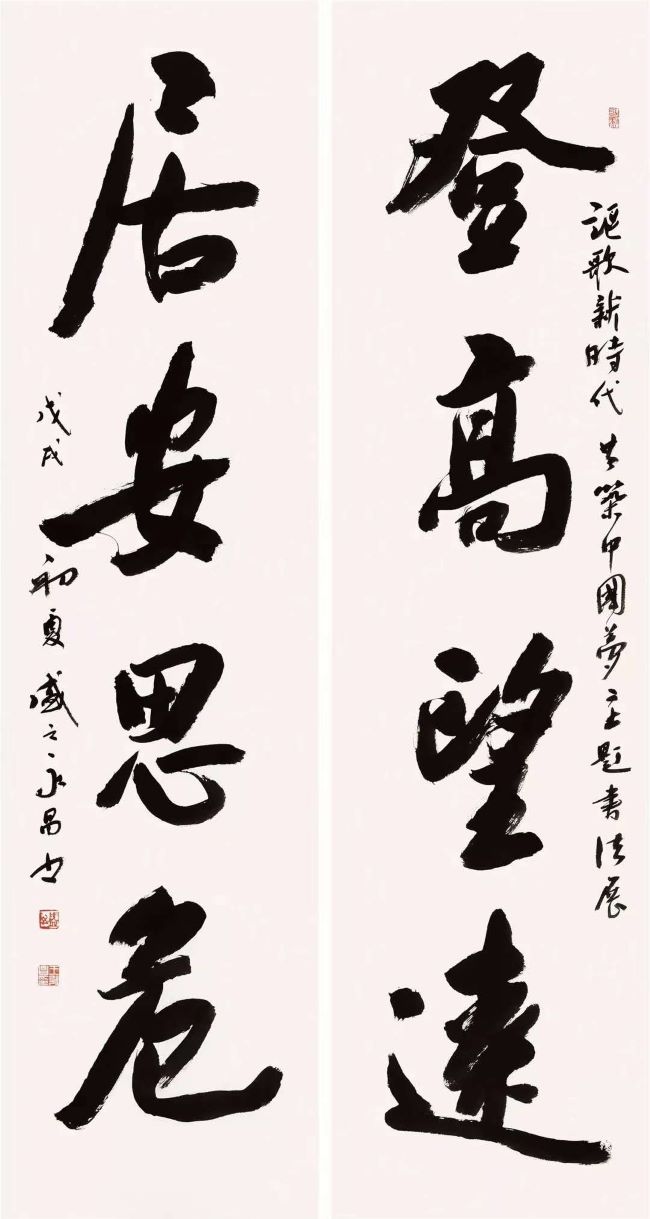 謳歌新時代 共築中國夢主題書法展
登高望遠
居安思危
戊戌初夏盛之永昌书